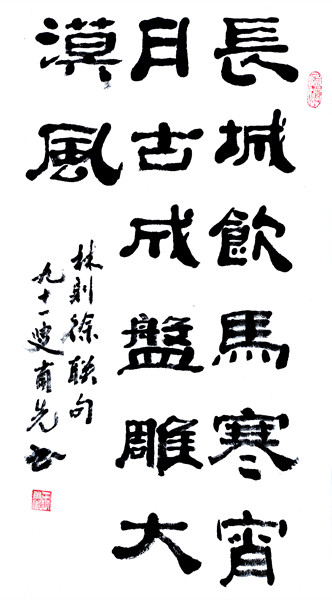 長城飲馬寒宵
月古戍盤雕大
漠風
林则徐联句
九十一叟甫先书